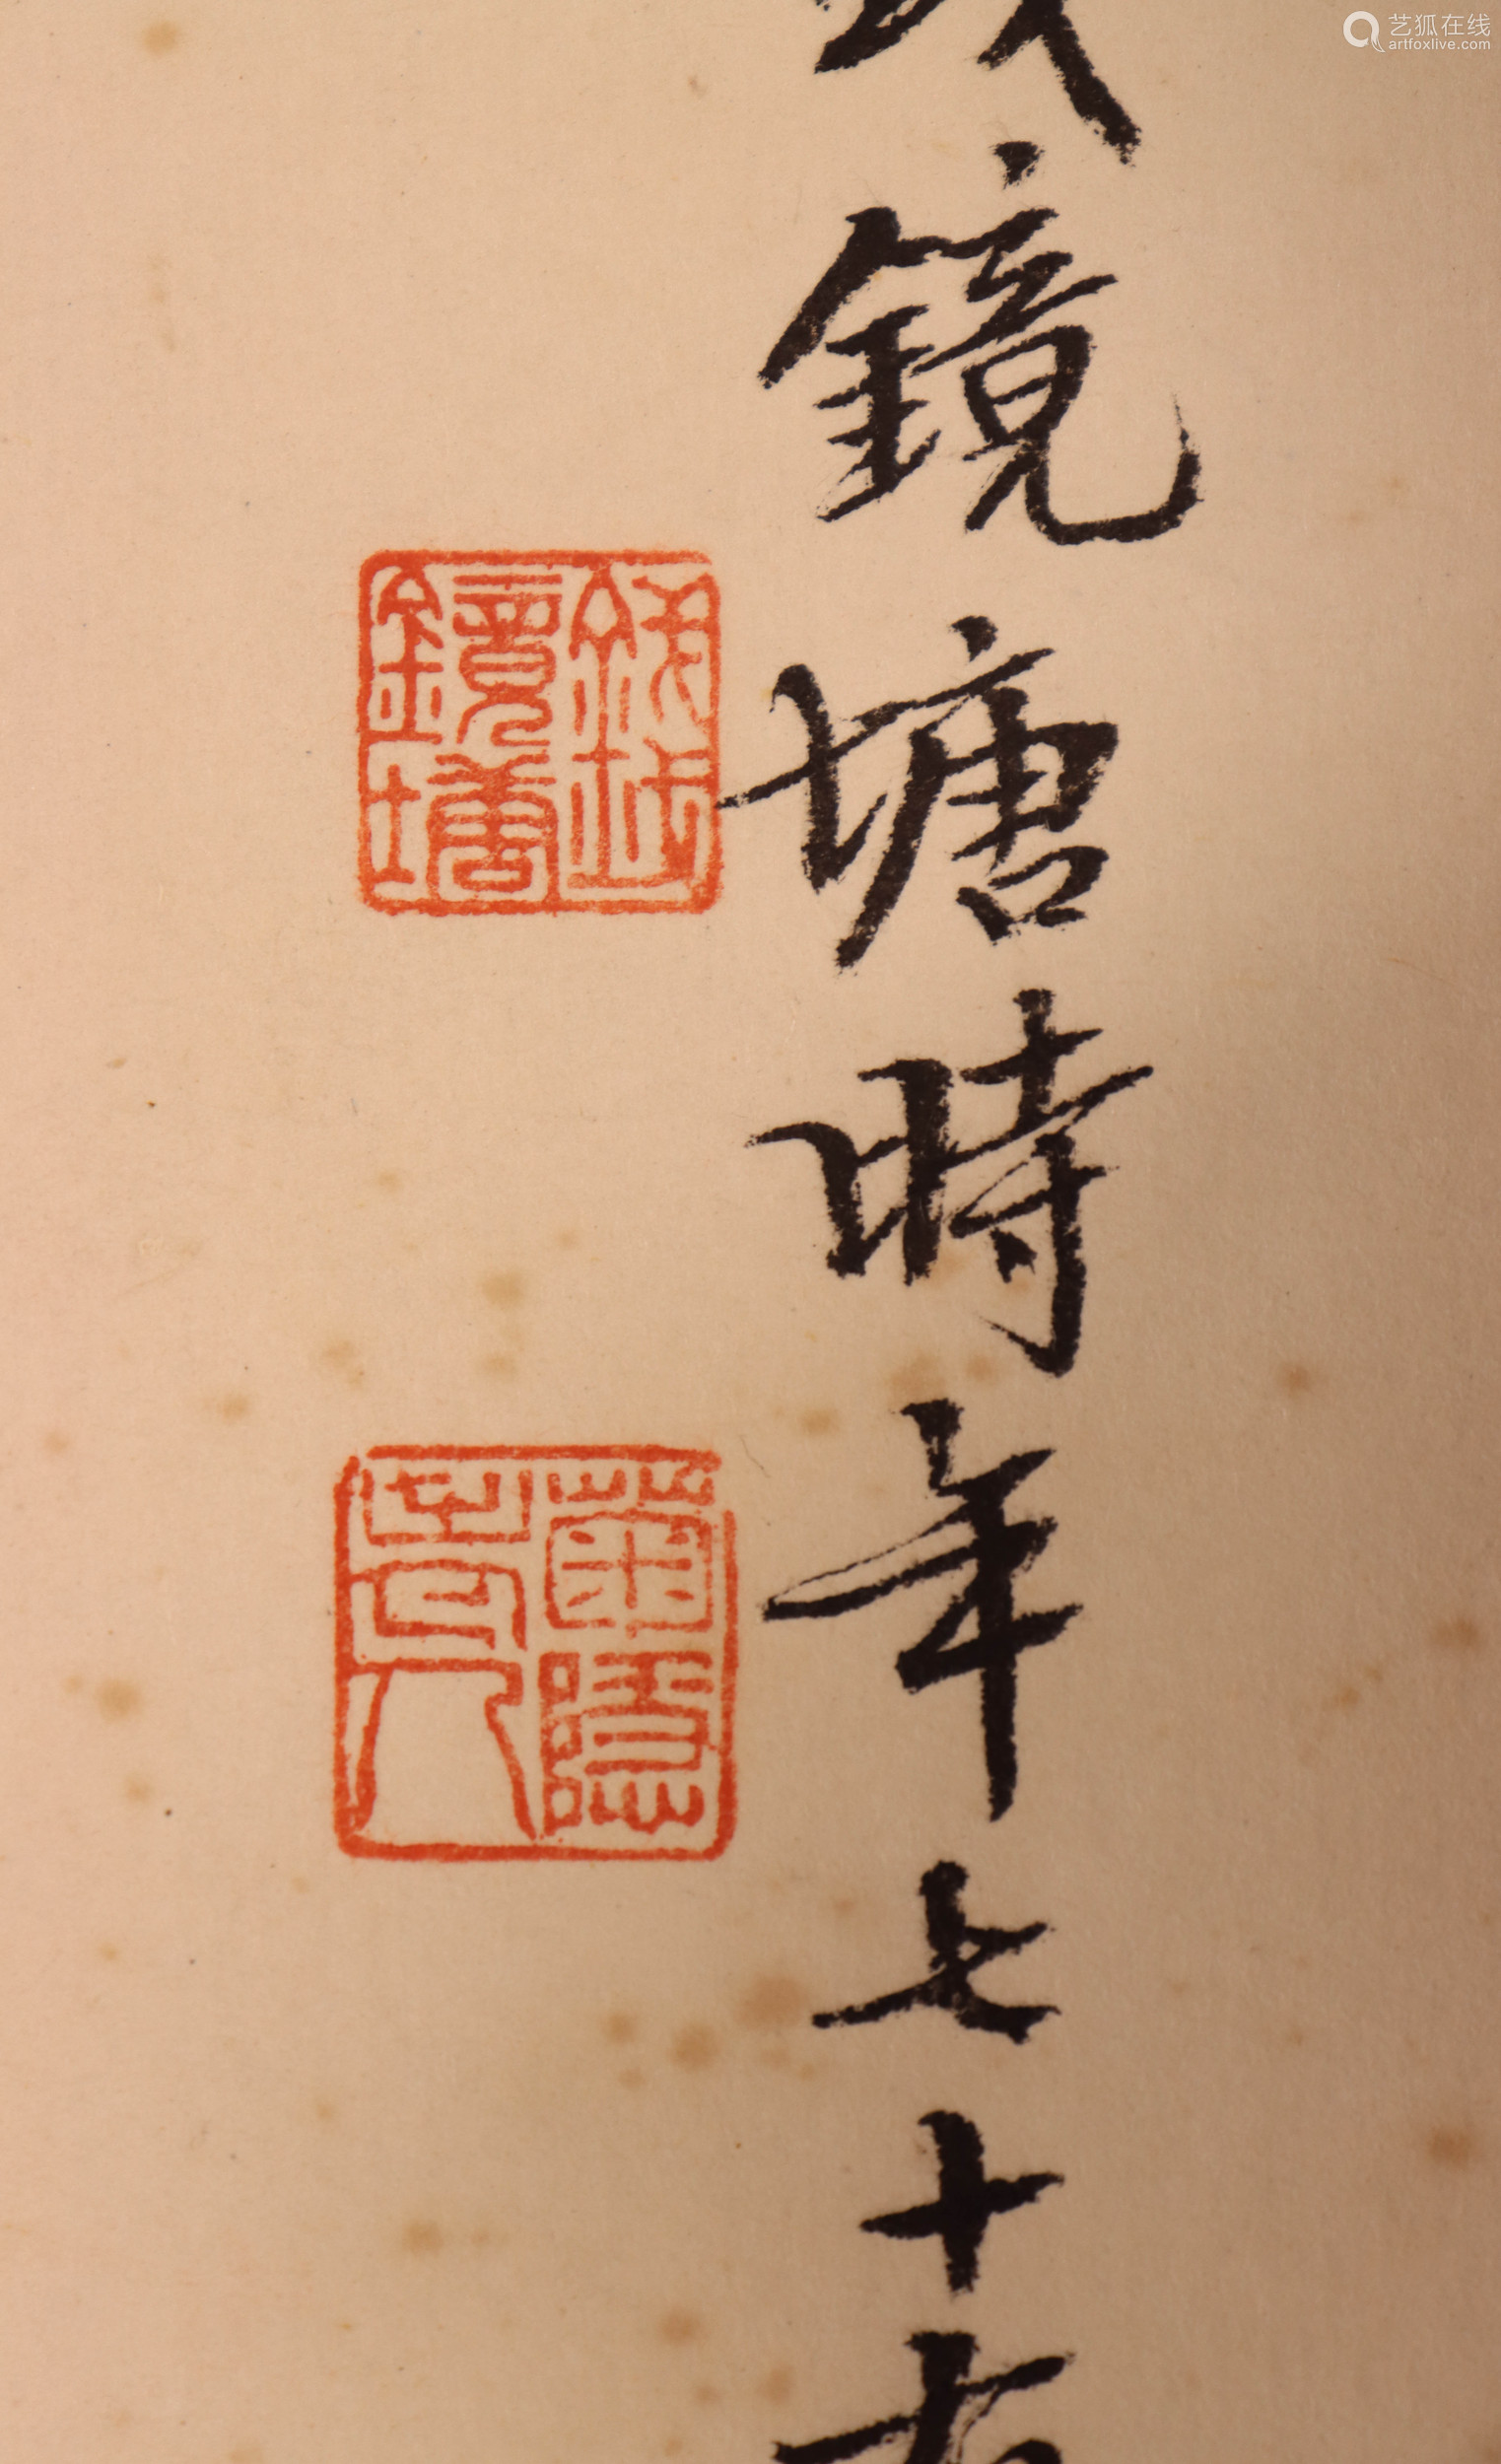 鏡塘時年七十有
錢鏡塘
菊隱老人
艺狐在线
artfoxlive.com